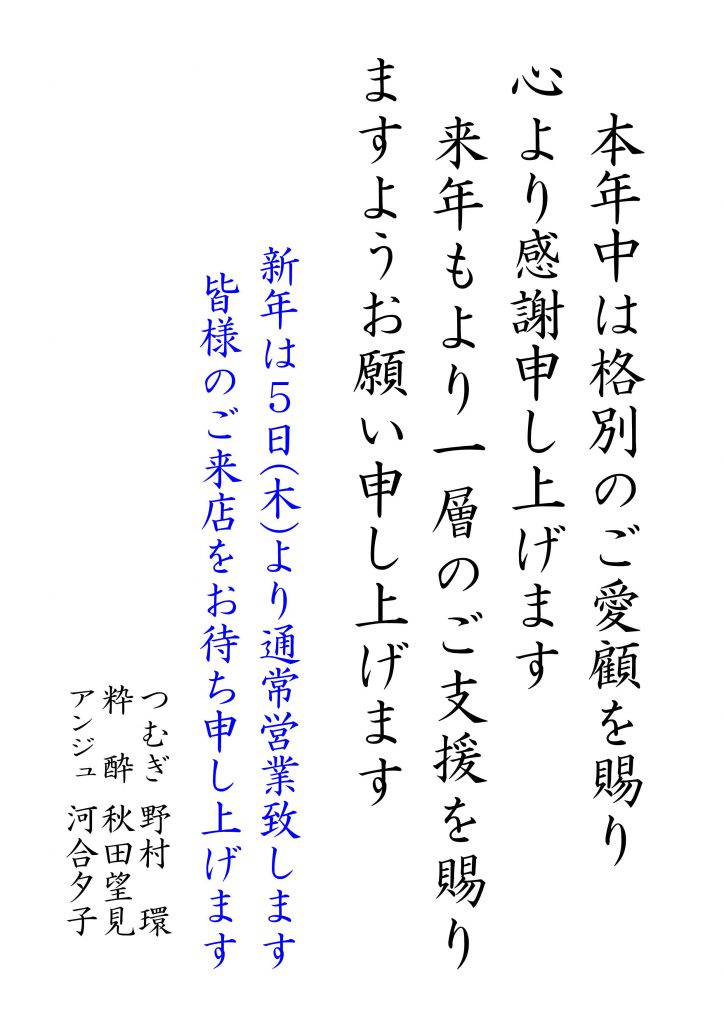 本年中は格別のご愛顧を賜り
心より感謝申し上げます
来年もより一層のご支援を賜り
ますようお願い申し上げます
新年は５日(木)より通常営業致します
皆様のご来店をお待ち申し上げます
つむぎ 野村 環
粋 酔 秋田望見
アンジュ 河合夕子